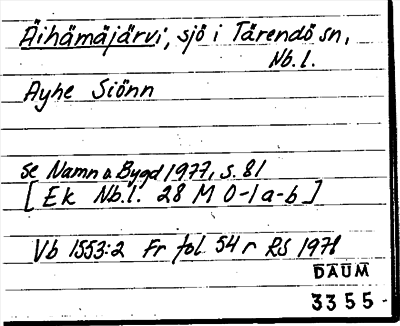 Äihämäjärvi, sjö i Tärendö sn,
Nb.l.
Ayhe Siönn
se Namn o. Bygd 1977, s. 81
[ Ek Nb.l. 28 M 0-1 a-b ]
Vb 1553:2 Fr fol. 54 r RS 1978
DAUM
3355